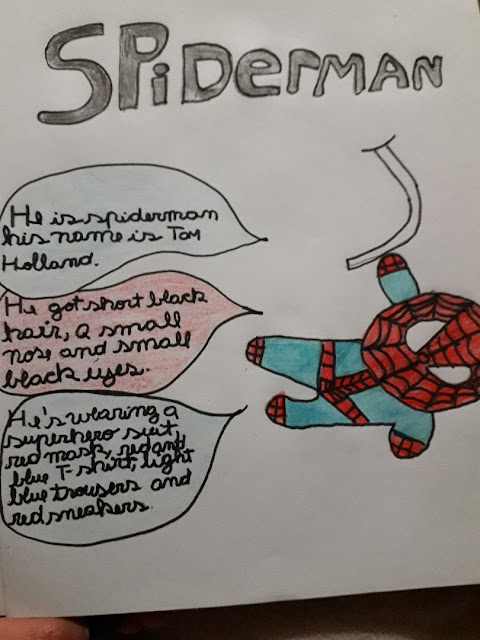 SPiDerMAN
He is spiderman
his name is Tom
Holland.
He got short black
hair, a small
nose and small
black eyes.
He's wearing a
superhero suit,
red mask, red and
blue T-shirt, light
blue trousers and
red sneakers.